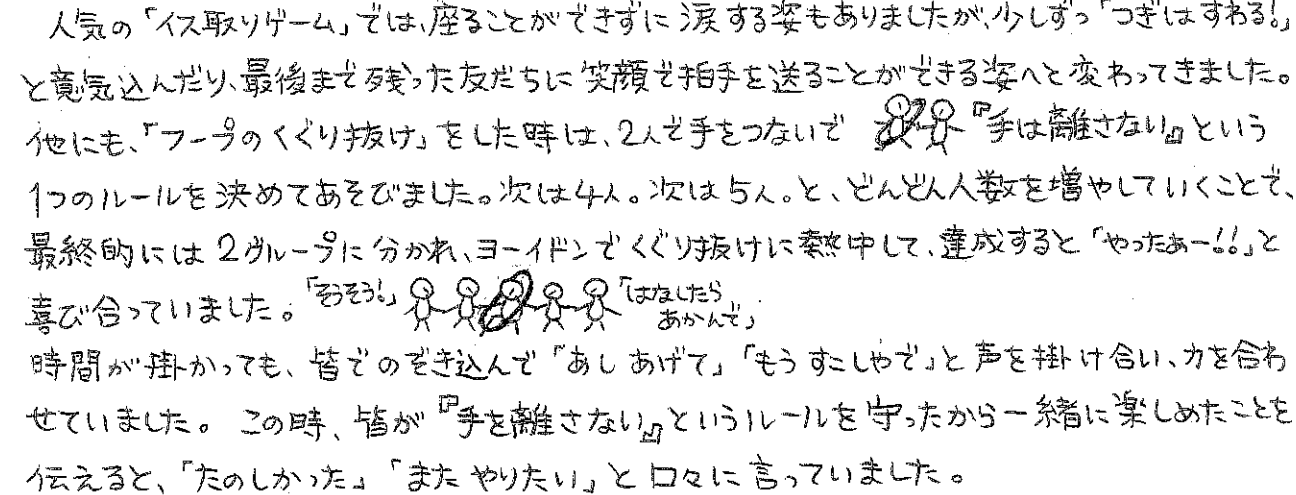 人気の「イス取りゲーム」では、座ることができずに涙する姿もありましたが、少しずつ「つぎはすわる!」
と意気込んだり、最後まで残った友だちに笑顔で拍手を送ることができる姿へと変わってきました。
他にも、「フープのくぐり抜け」をした時は、2人で手をつないで『手は離さない』という
1つのルールを決めてあそびました。次は4人。次は5人。と、どんどん人数を増やしていくことで、
最終的には2グループに分かれ、ヨーイドンでくぐり抜けに熱中して、達成すると「やったぁー!!」と
喜び合っていました。「そうそう!」「はなしたら
あかんで」
時間が掛かっても、皆でのぞき込んで「あしあげて」「もうすこしやで」と声を掛け合い、力を合わ
せていました。この時、皆が『手を離さない』というルールを守ったから一緒に楽しめたことを
伝えると、「たのしかった」「またやりたい」と口々に言っていました。